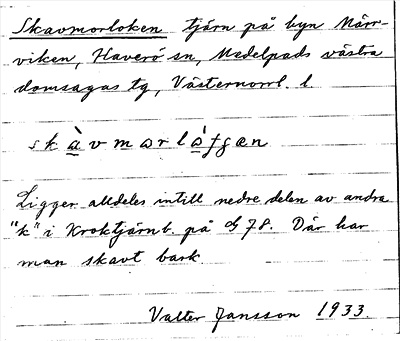 Skavmorloken tjärn på byn Närr-
viken, Haverö sn, Medelpads västra
domsagas tg, Västernorrl. l.
Ligger alldeles intill nedre delen av andra
"k" i Kroktjärnb. på 78. Där har
man skavt bark.
Valter Jansson 1933.